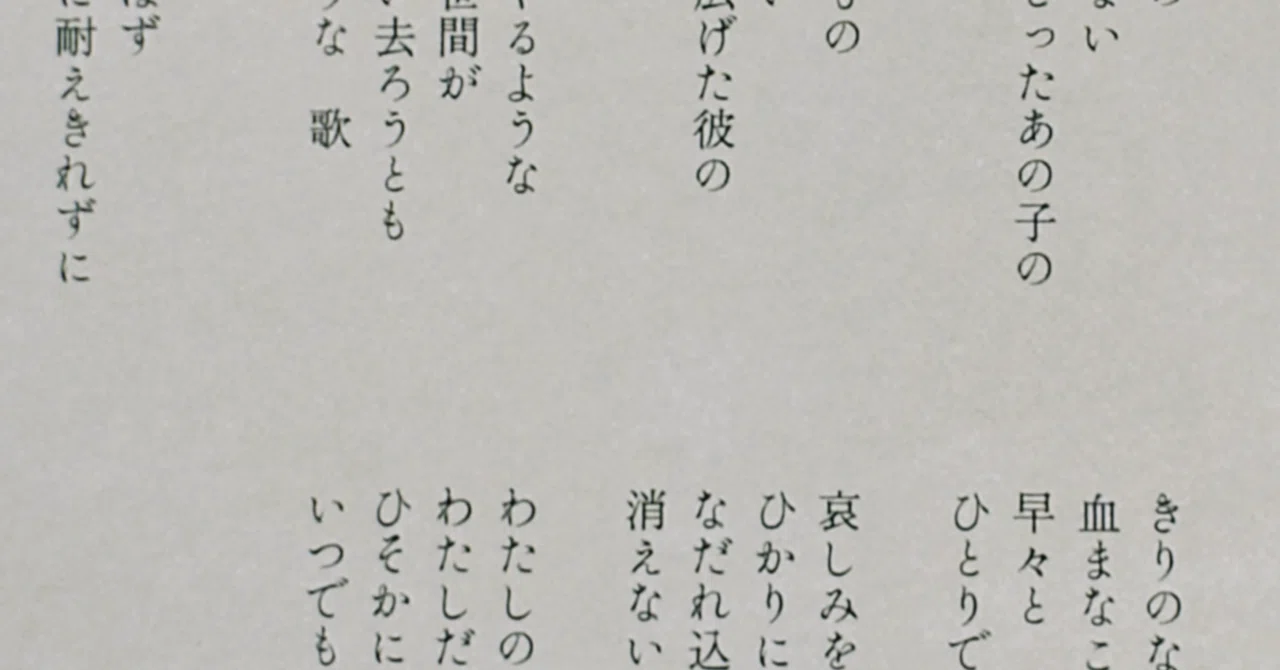 ない
ったあの子の
もの
広げた彼の
るような
世間が
去ろうとも
な　歌
ず
に耐えきれずに
きりのな
血まなこ
早々と
ひとりで
哀しみを
ひかりに
なだれ込
消えない
わたしの
わたしだ
ひそかに
いつでも